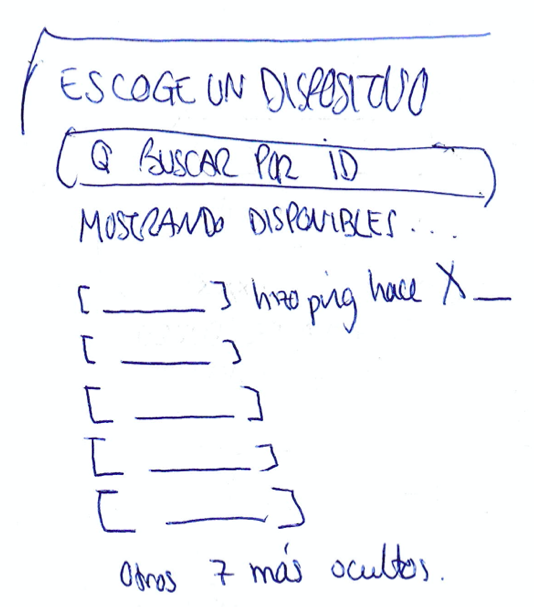 ESCOGE UN DISPOSITIVO
BUSCAR POR ID
MOSTRANDO DISPONIBLES...
[ ______ ] hizo ping hace X __
[ ______ ]
[ ______ ]
[ ______ ]
[ ______ ]
Otros 7 más ocultos.